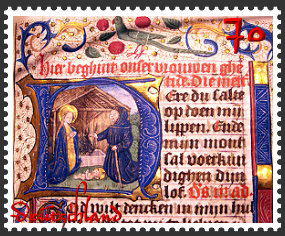 70
Hier beghint onser vrouwen ghe
tide. Die met
Ere du salte
op doen mij
lippen. Ende
mijn mont
sal voerkun
dighen dijn
lof.
God wilt dencken in mijn hul
Deutschland